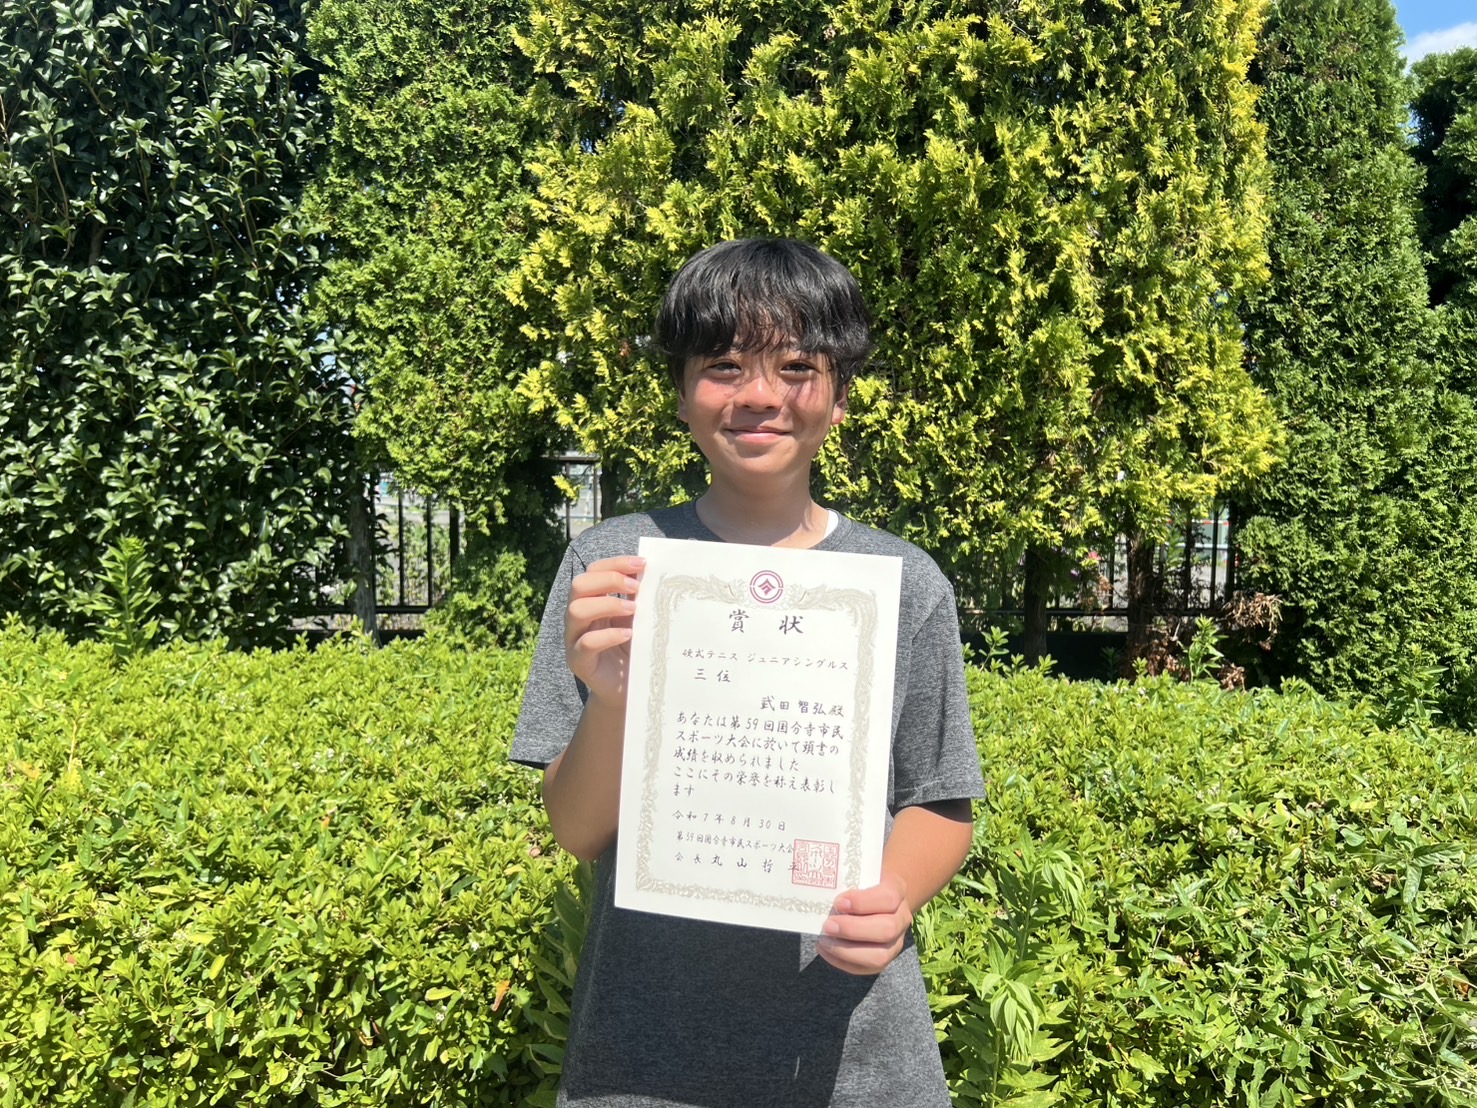 賞状
硬式テニス ジュニアシングルス
三位
武田 智弘 殿
あなたは第59回国分寺市民
スポーツ大会に於いて頭書の
成績を収められました
ここにその栄誉を称え表彰し
ます
令和7年8月30日
第59回国分寺市民スポーツ大会
会長 丸山 哲